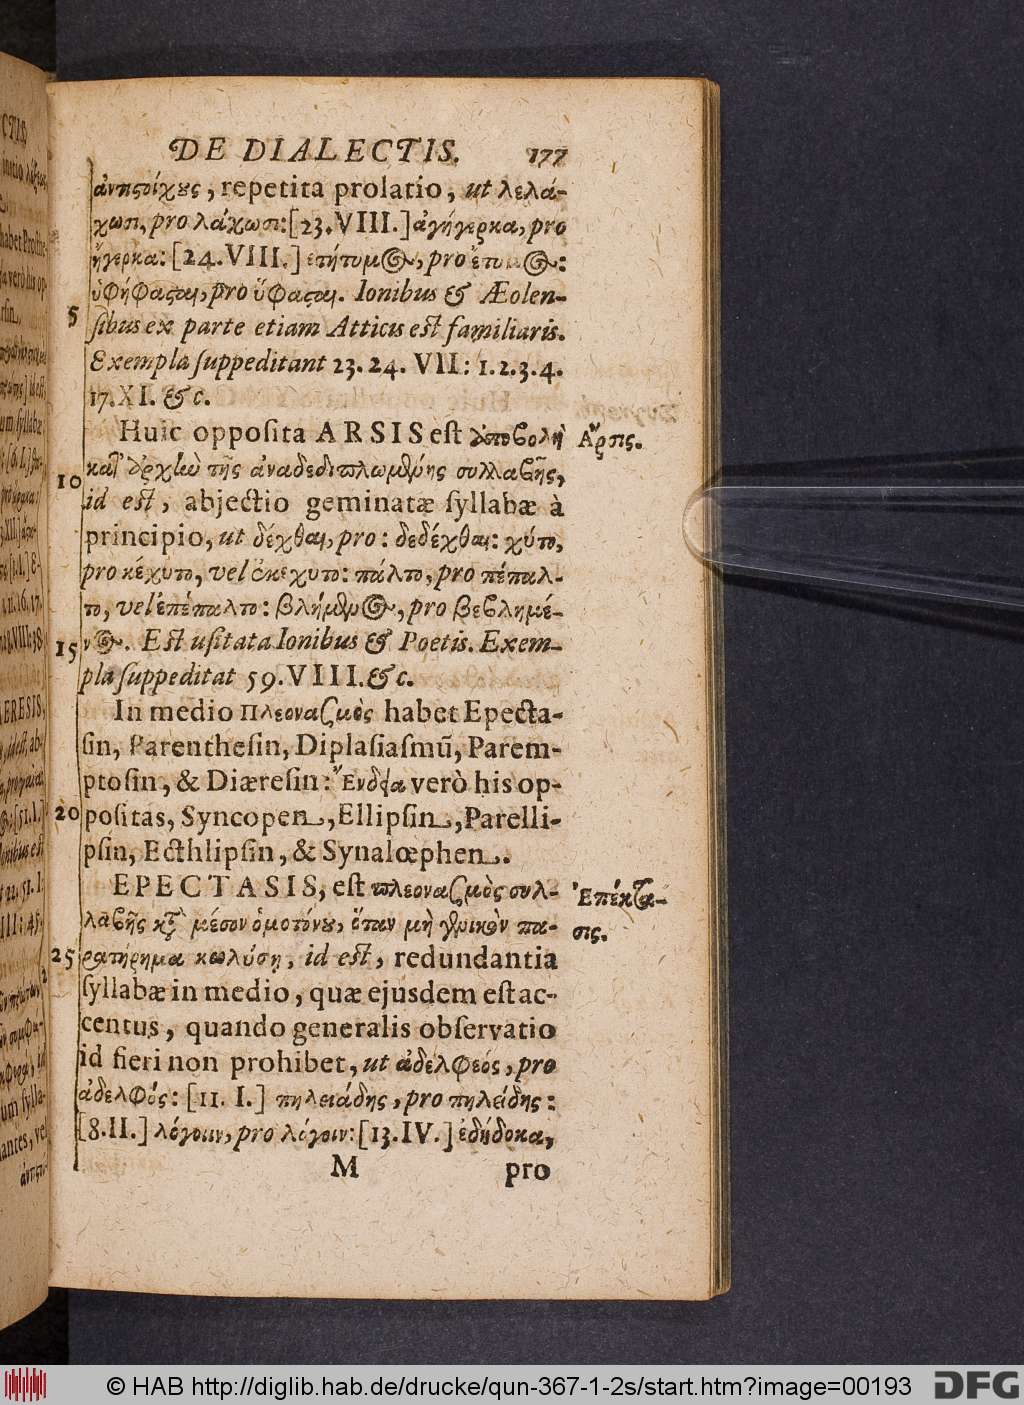 DE DIALECTIS. 177
ἀντιστοίχους, repetita prolatio, ut λελά-
χωσι, pro λάχωσι: [23. VIII.] ἀγήγερκα, pro
ἤγερκα: [24. VIII.] ἐτήτυμος, pro ἔτυμος:
ὑφήφασται, pro ὕφασται. Ionibus & Æolen-
5 sibus ex parte etiam Atticis est familiaris.
Exempla suppeditant 23. 24. VII: 1. 2. 3. 4.
17. XI. &c.
Huic opposita ARSIS est ἀποβολὴ Ἄρσις.
καὶ ἀρχὴν τῆς ἀναδεδιπλωμένης συλλαβῆς,
10 id est, abjectio geminatæ syllabæ à
principio, ut δέχθαι, pro: δεδέχθαι: χύτο,
pro κέχυτο, vel ἐκέχυτο: πάλτο, pro πέπαλ-
το, vel ἐπέπαλτο: βλήμενος, pro βεβλημέ-
νος. Est usitata Ionibus & Poetis. Exem-
15 pla suppeditat 59. VIII. &c.
In medio Πλεονασμὸς habet Epecta-
sin, Parenthesin, Diplasiasmũ, Parem-
ptosin, & Diæresin: Ἔνδεια verò his op-
20 positas, Syncopen, Ellipsin, Parelli-
psin, Ecthlipsin, & Synalœphen.
EPECTASIS, est πλεονασμὸς συλ- Ἐπέκτα-
λαβῆς κατὰ μέσον ὁμοτόνου, ὅταν μὴ γενικὸν πα- σις.
25 ρατήρημα κωλύσῃ, id est, redundantia
syllabæ in medio, quæ ejusdem est ac-
centus, quando generalis observatio
id fieri non prohibet, ut ἀδελφεός, pro
ἀδελφός: [11. I.] πηλειάδης, pro πηλείδης:
[8. II.] λόγοιιν, pro λόγοιν: [13. IV.] ἐδήδοκα,
M pro
© HAB http://diglib.hab.de/drucke/qun-367-1-2s/start.htm?image=00193 DFG